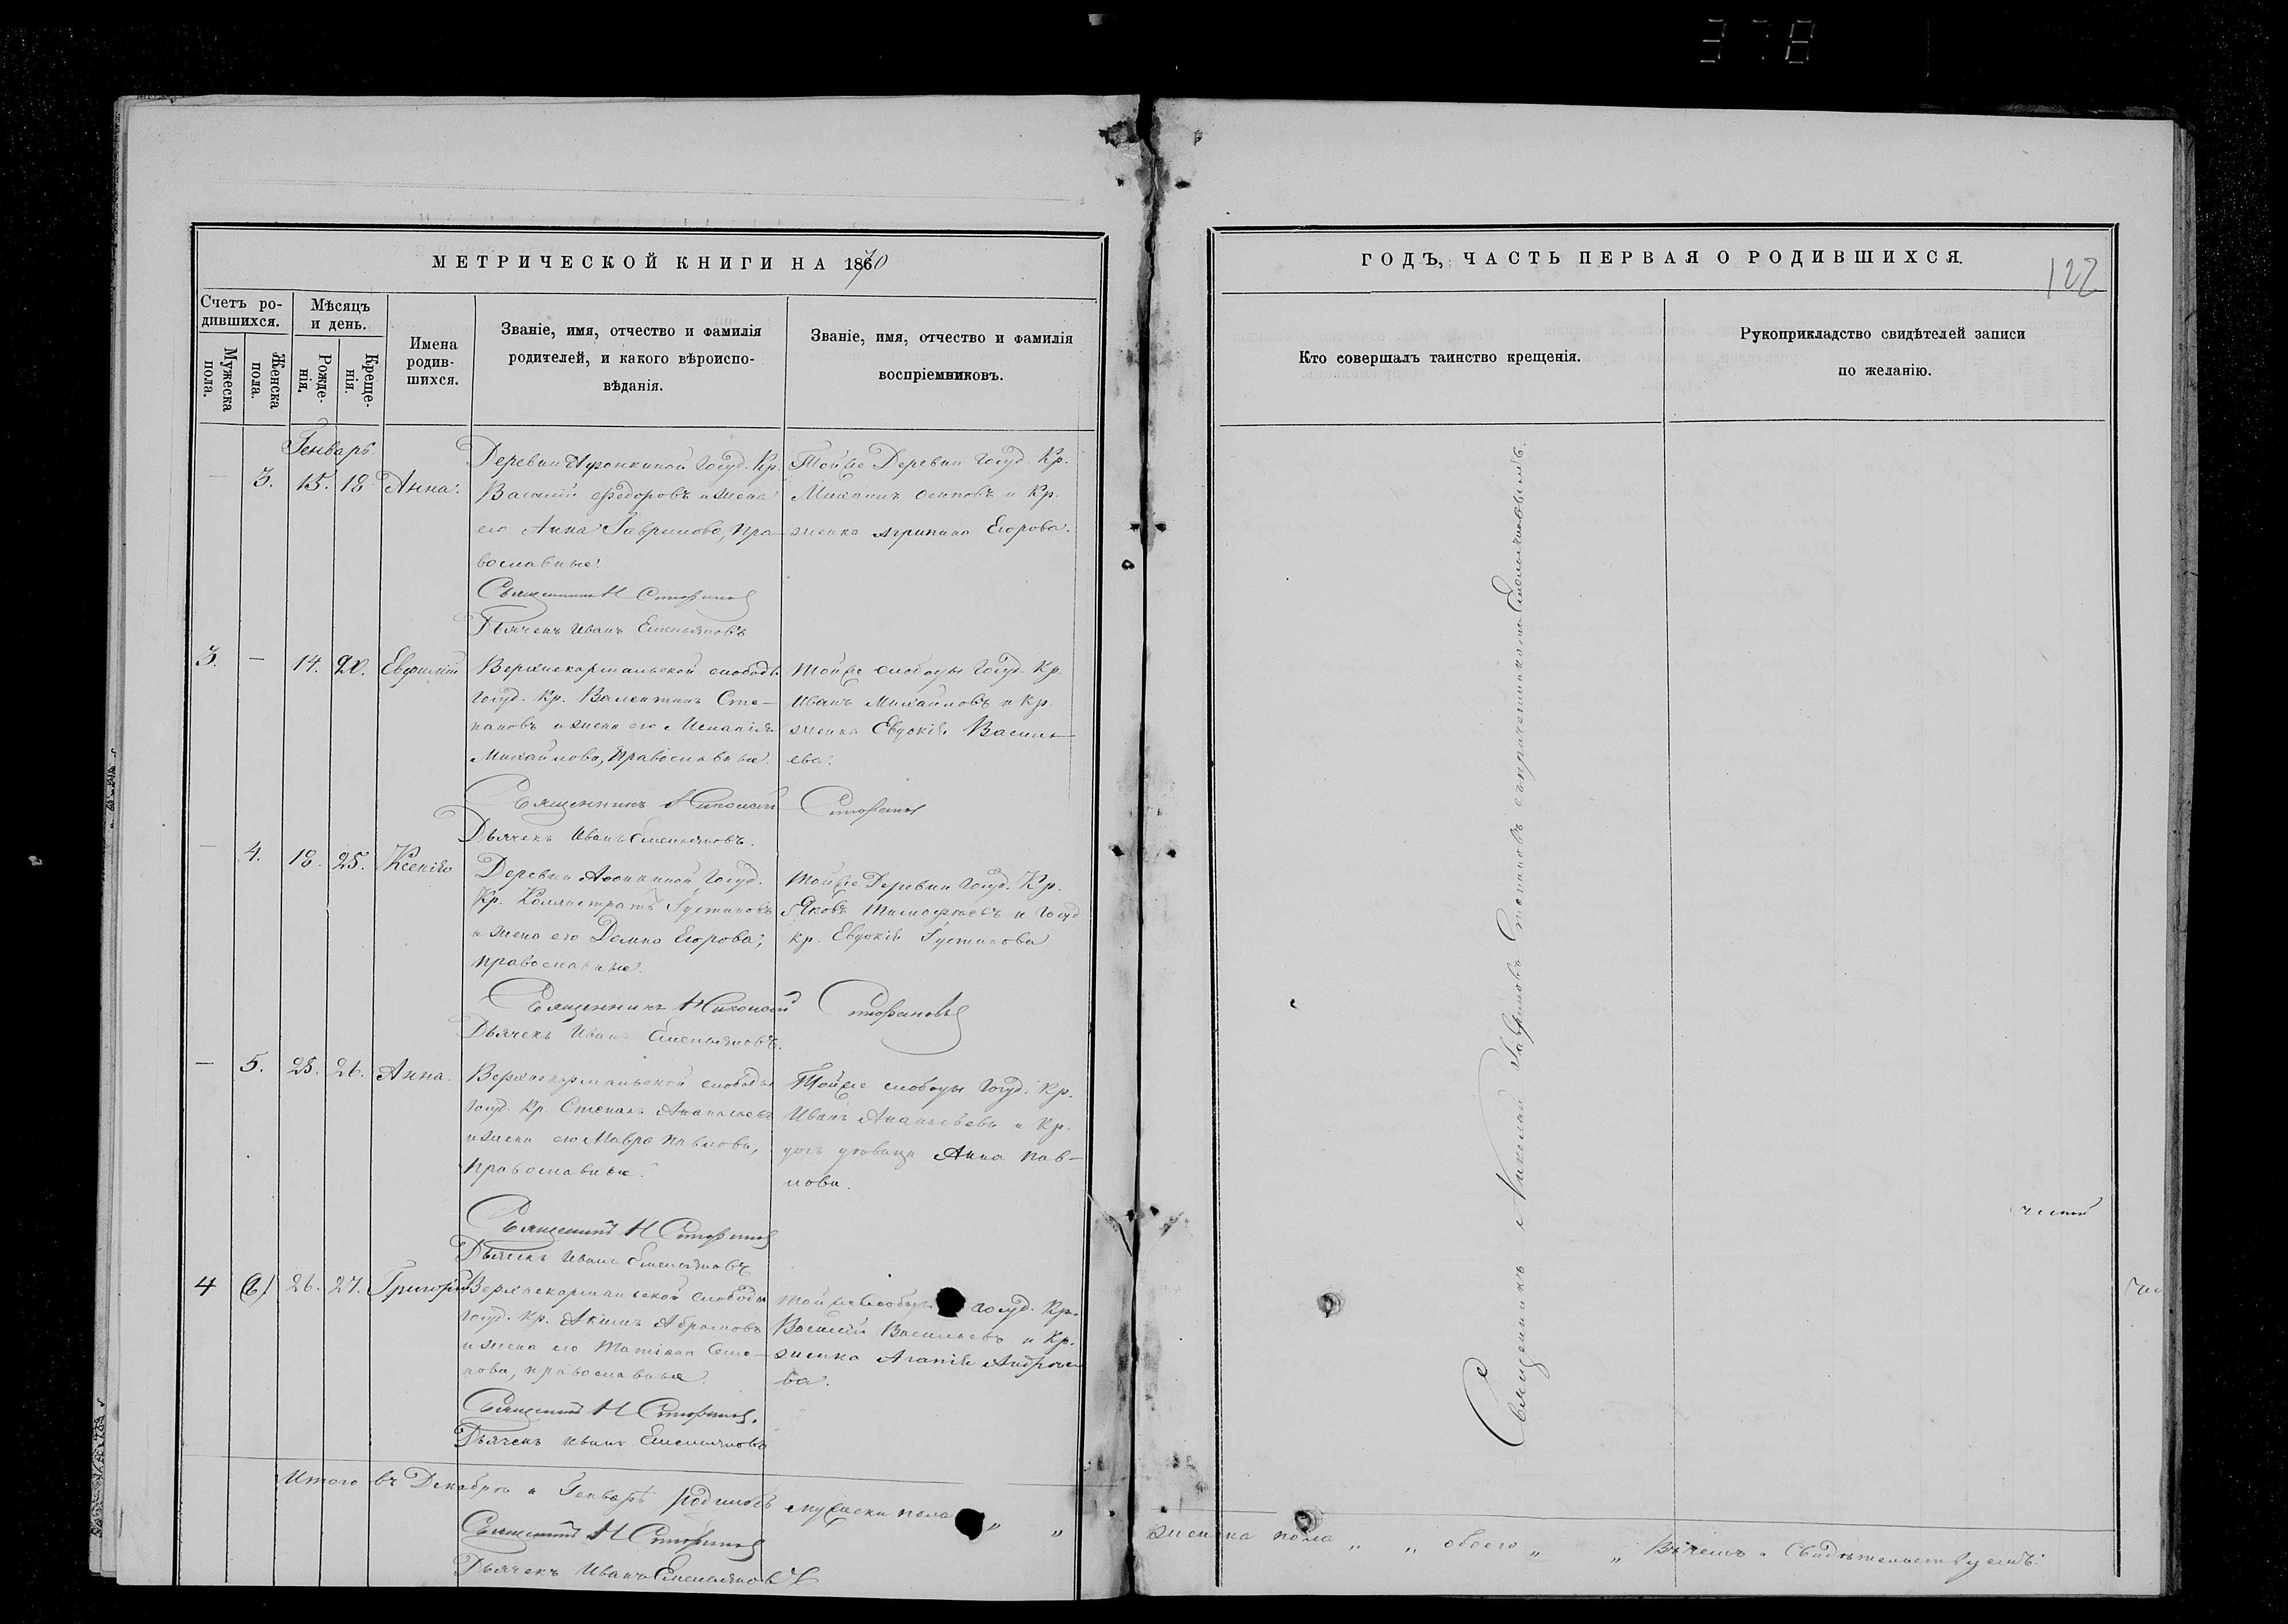 378
МЕТРИЧЕСКОЙ КНИГИ НА 1870
Счетъ ро-
дившихся.
Мужеска
пола.
Женска
пола.
Мѣсяцъ
и день.
Рожде-
нія.
Креще-
нія.
Имена
родив-
шихся.
Званіе, имя, отчество и фамилія
родителей, и какого вѣроиспо-
вѣданія.
Званіе, имя, отчество и фамилія
воспріемниковъ.
Генварь
— 3. 15. 18. Анна.
Деревни Афонкиной Госуд. Кр.
Василій Ѳедоровъ и жена
его Анна Гаврилова, пра-
вославные.
Тойже Деревни Госуд. Кр.
Михаилъ Осиповъ и Кр.
женка Агрипина Егорова.
Священникъ Н
Дьячекъ Иванъ Емельяновъ
3. — 14. 20. Евфимій
Верхнекормальской слободы
Госуд. Кр. Валентинъ Сте-
пановъ и жена его Меланія
Михайлова, православные.
Тойже слободы Госуд. Кр.
Иванъ Михайловъ и Кр.
женка Евдокія Василь-
ева.
Священникъ Николай
Дьячекъ Иванъ Емельяновъ.
— 4. 18. 25. Ксенія
Деревни Афонкиной Госуд.
Кр. Каллистратъ Густиновъ
и жена его Домна Егорова,
православные.
Тойже Деревни Госуд. Кр.
Яковъ Тимофѣевъ и Госуд.
кр. Евдокія Густинова
Священникъ Николай
Дьячекъ Иванъ Емельяновъ.
— 5. 25. 26. Анна.
Верхнекормальской слободы
Госуд. Кр. Степанъ Ананьевъ
и жена его Мавра Павлова,
православные.
Тойже слободы Госуд. Кр.
Иванъ Ананьевъ и Кр.
дочь дѣвица Анна Пав-
лова.
Священникъ Н
Дьячекъ Иванъ Емельяновъ
4 (6) 26. 27. Григорій
Верхнекормальской слободы
Госуд. Кр. Акимъ Абрамовъ
и жена его Татіана Семе-
нова, православные.
Тойже слободы Госуд. Кр.
Василій Васильевъ и Кр.
женка Агапія Андрее-
ва.
Священникъ Н
Дьячекъ Иванъ Емельяновъ
Итого въ Декабрѣ и Генварѣ родилось мужеска пола „ „
Священникъ Н
Дьячекъ Иванъ Емельяновъ
ГОДЪ, ЧАСТЬ ПЕРВАЯ О РОДИВШИХСЯ.
122
Кто совершалъ таинство крещенія.
Рукоприкладство свидѣтелей записи
по желанію.
Священникъ Николай Гавриловъ Степановъ съ причетникомъ
женска пола „ „ обоего „ „ Въ чемъ и Свидѣтельствуемъ: